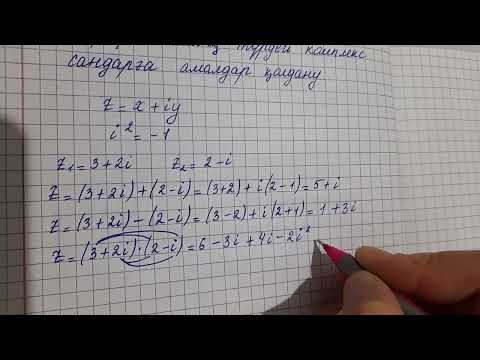 түрдегі комплекс
сандарға амалдар қолдану
z = x + iy
i² = -1
z₁ = 3 + 2i z₂ = 2 - i
z = (3 + 2i) + (2 - i) = (3+2) + i(2-1) = 5 + i
z = (3 + 2i) - (2 - i) = (3-2) + i(2+1) = 1 + 3i
z = (3 + 2i)·(2 - i) = 6 - 3i + 4i - 2i²